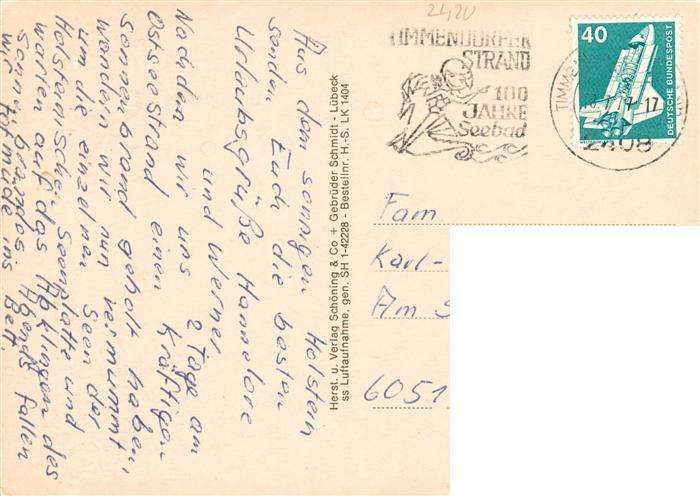 2420
TIMMENDORFER
STRAND
100
JAHRE
Seebad
40
DEUTSCHE BUNDESPOST
TIMME
17
2408
Aus dem sonnigen Holstein
senden Euch die besten
Urlaubsgrüße Hannelore
und Werner
Nachdem wir uns 2 Tage am
Ostseestrand einen kräftigen
Sonnenbrand geholt haben,
wandern wir nun vermummt
um die einzelnen Seen der
Holsteinischen Seenplatte und
warten auf das Abklingen des
Sonnenbrandes. Abends fallen
wir totmüde ins Bett.
Herst. u. Verlag Schöning & Co + Gebrüder Schmidt - Lübeck
ss Luftaufnahme, gen. SH 1-42228 - Bestellnr. H.-S. LK 1404
Fam
Karl-
Am S
6051